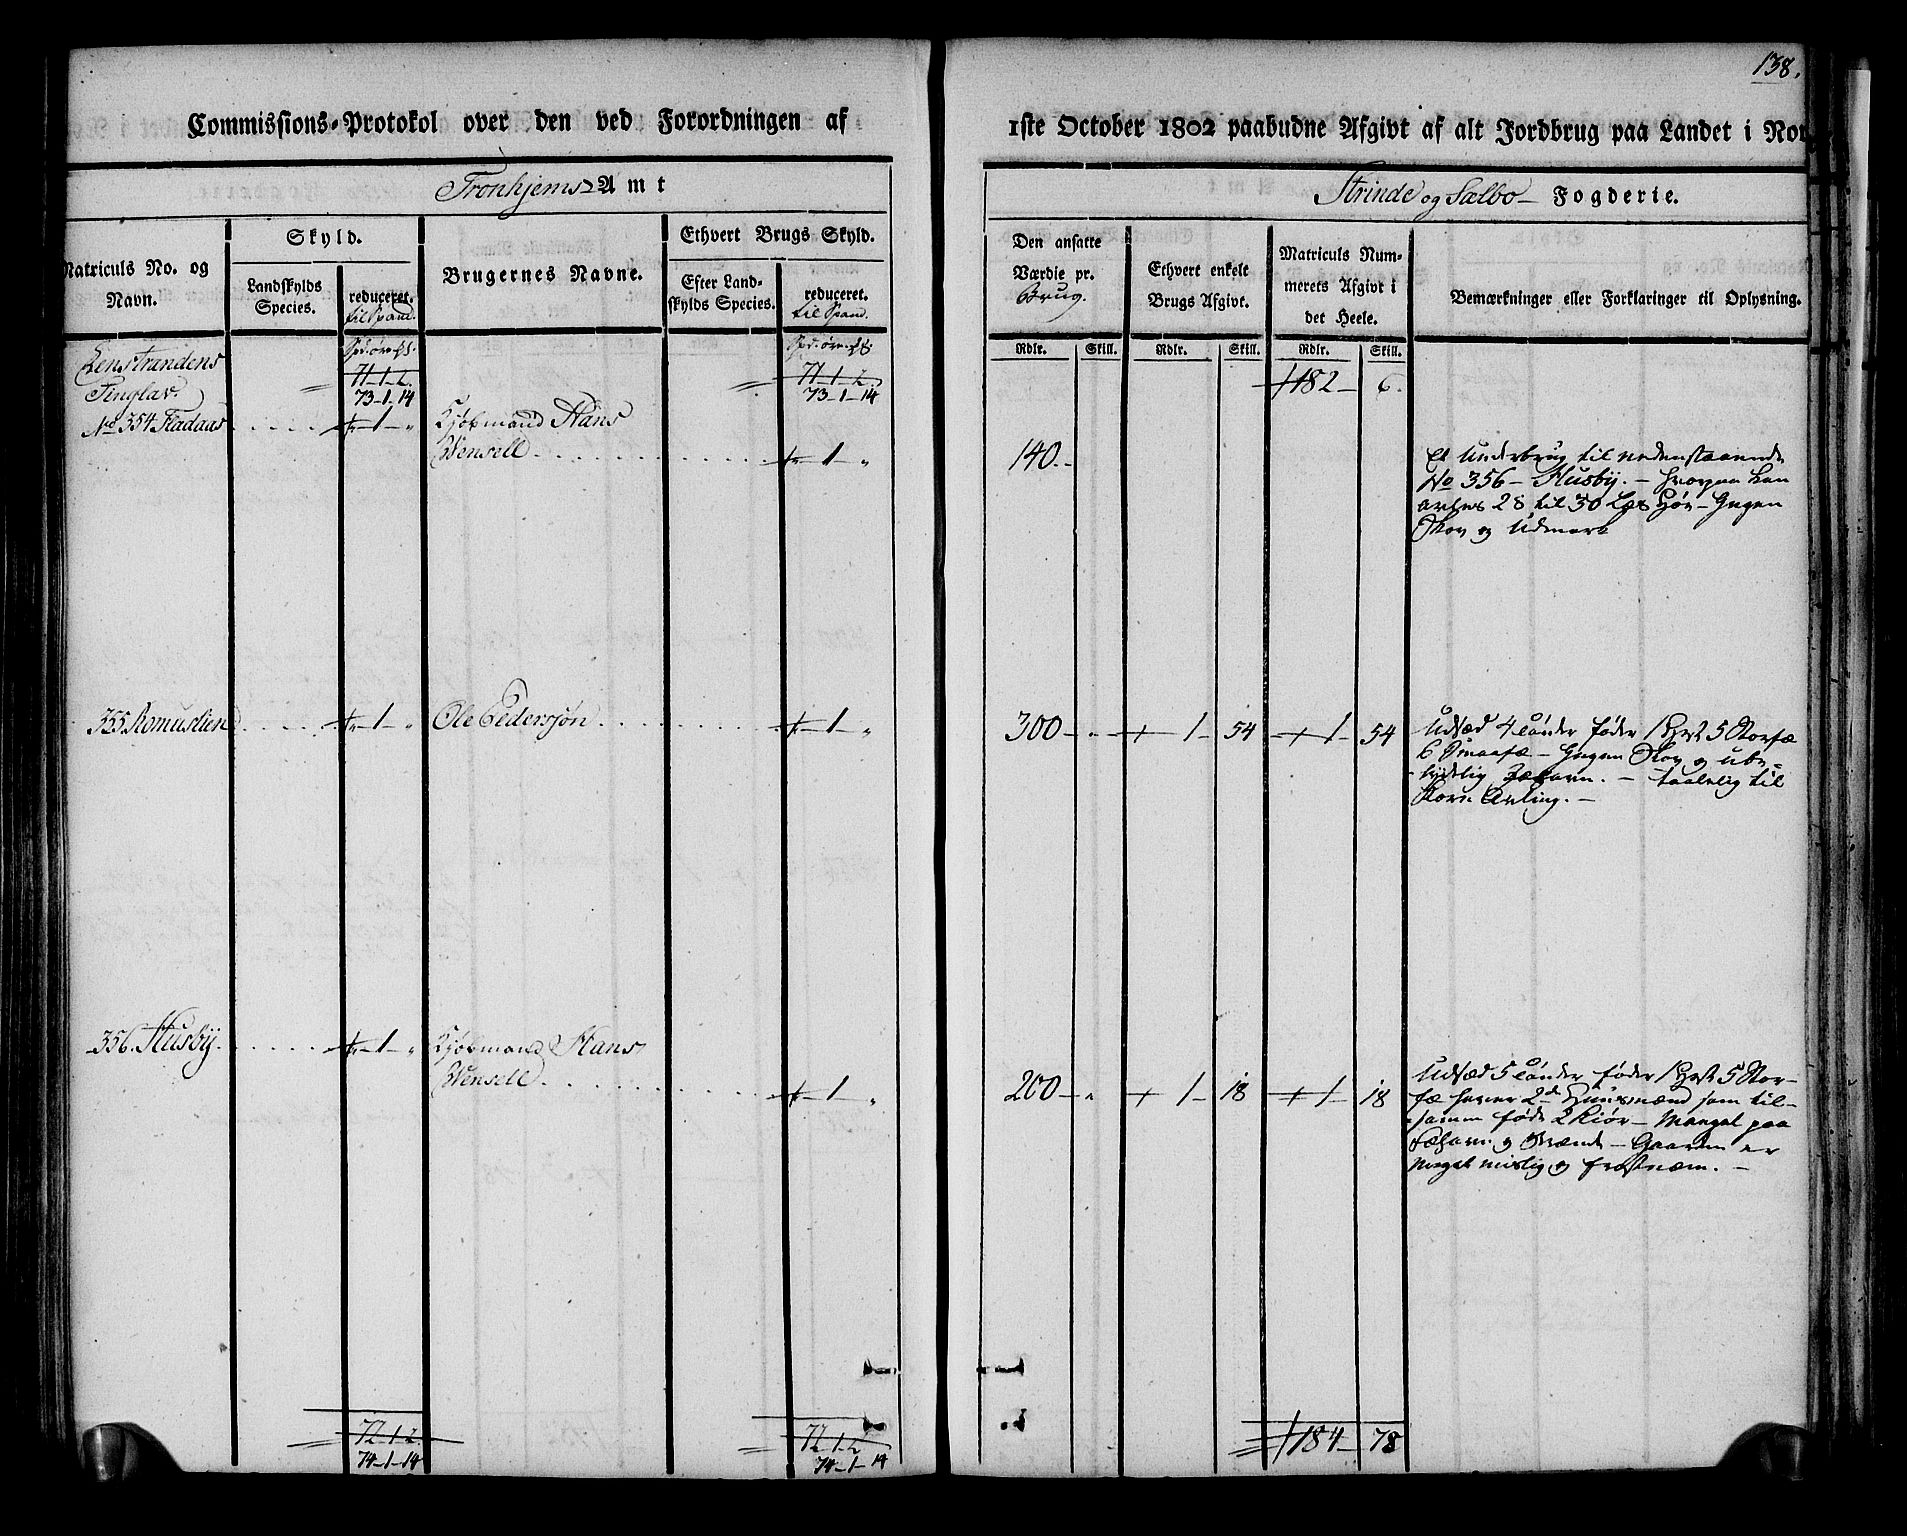 138.
Commissions-Protokol over den ved Forordningen af
1ste October 1802 paabudne Afgivt af alt Jordbrug paa Landet i Nor
Tronhjems Amt
Strinde og Sælbo Fogderie.
Matriculs No. og Navn.
Skyld.
Landskylds Species.
reduceret. til Spand.
Brugernes Navne.
Ethvert Brugs Skyld.
Efter Landskylds Species.
reduceret. til Spand.
Den ansatte Værdie pr. Brug.
Ethvert enkelt Brugs Afgivt.
Matriculs Nummerets Afgivt i det Heele.
Bemærkninger eller Forklaringer til Oplysning.
Rdlr. Skill. Rdlr. Skill. Rdlr. Skill.
Lenstrandens
Tinglav.
71-1-2. 71-1-2.
73-1-14 73-1-14
182- 6.
No 354 Fladaas 1 Kjøbmand Hans
Wensell 1 140.-
Et Underbrug til nedenstaaende
No 356 - Husby. - hvorpaa kan
avles 28 til 30 Læs Høe - Ingen
Skov og Udmark
355 Romuslien 1 Ole Pedersøn 1 300 1 54 1 54
Udsæd 4 Tønder føder 1 Hest 5 Storfæ
6 Smaafæ - Ingen Skov og ube-
tydelig Fæhavn. - taalelig til
Korn Avling. -
356. Husby. 1 Kjøbmand Hans
Wensell 1 200 1 18 1 18
Udsæd 5 Tønder føder 1 Hest 5 Stor-
fæ haver 2de Huusmænd som til-
sammen føde 2 Kiør - Mangel paa
Fæhavn og Brænde - Gaarden er
meget mislig og frostnæm. -
72-1-2. 72-1-2
74-1-14 74-1-14
184- 78